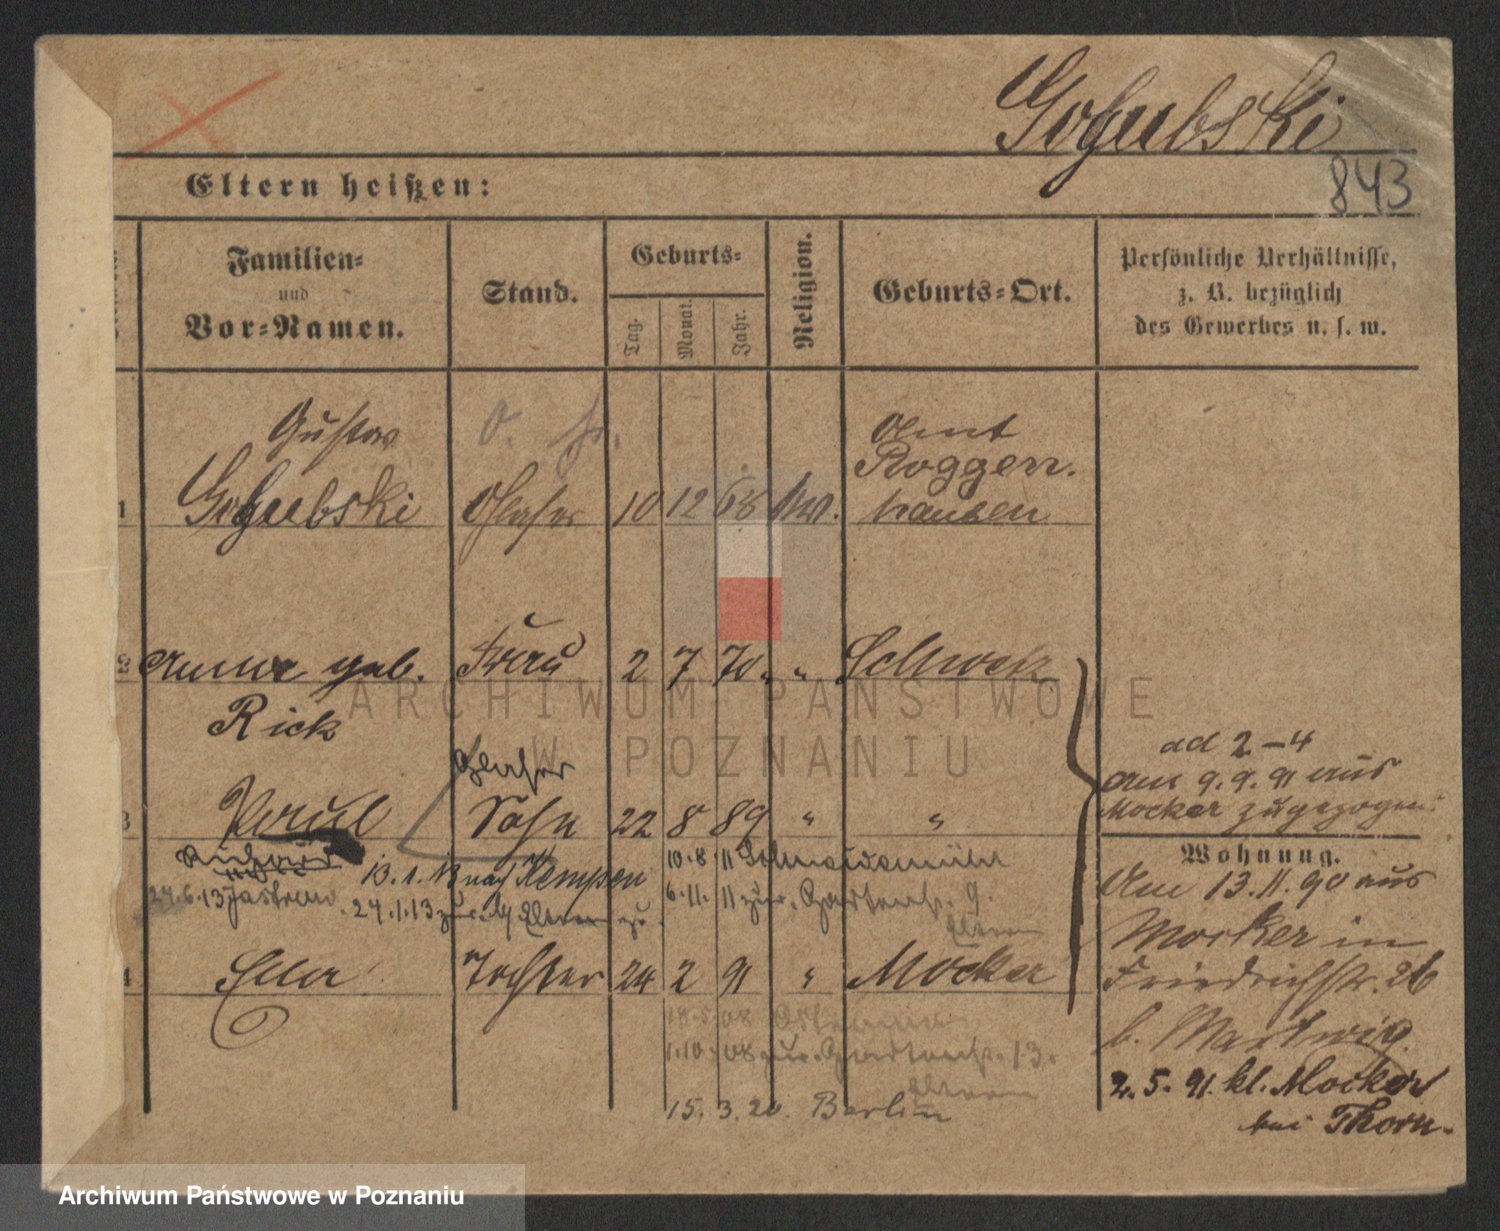 Golubski
843
Eltern heißen:
Familien-
und
Vor-Namen.
Stand.
Geburts-
Tag.
Monat.
Jahr.
Religion.
Geburts-Ort.
Persönliche Verhältnisse,
z. B. bezüglich
des Gewerbes u. s. w.
Gustav
1 Golubski Glaser 10 12 68 ev. Amt Roggen-
hausen
2 Anna geb. Frau 2 7 70 " Schwetz
Rick
Glaser
3 Paul Sohn 22 8 89 " "
ad 2-4
am 9.9.91 aus
Mocker zugezogen.
Wohnung.
10.8.11 Schneidemühl
13.1.13 nach Kempen
6.11.11 zur. Gartenstr. 9.
24.6.13 Jastrow
24.1.13 zur.
Eltern
4 Ella Tochter 24 2 91 " Mocker
Am 13.11.90 aus
Mocker in
Friedrichstr. 26
b. Hartwig.
2.5.91. kl. Mocker
bei Thorn.
18.5.08
1.10.08 zur. Gartenstr. 13.
Eltern
15.3.20. Berlin
ARCHIWUM PAŃSTWOWE
W POZNANIU
Archiwum Państwowe w Poznaniu